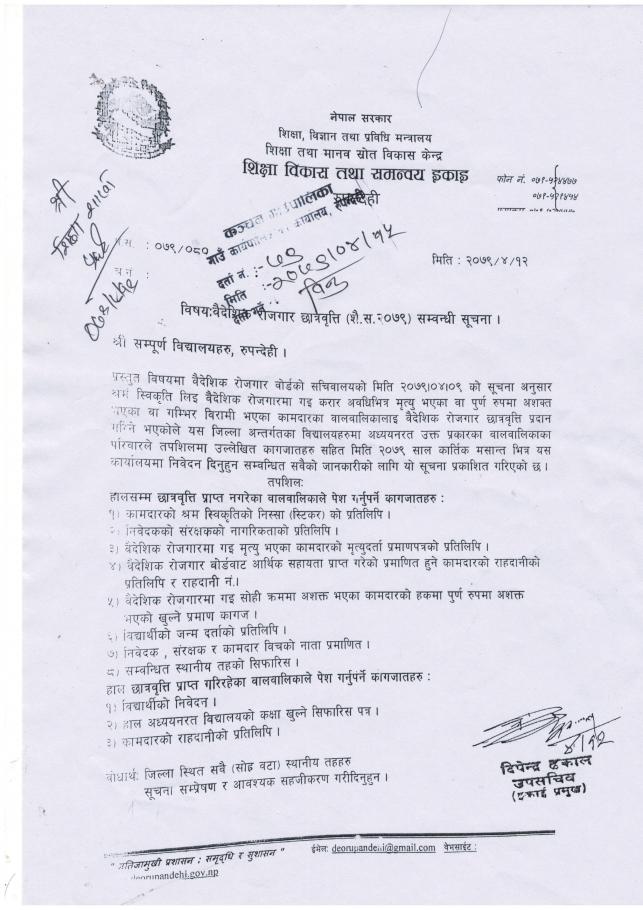 नेपाल सरकार
शिक्षा, विज्ञान तथा प्रविधि मन्त्रालय
शिक्षा तथा मानव स्रोत विकास केन्द्र
शिक्षा विकास तथा समन्वय इकाइ
फोन नं. ०७१-५२४४७७
०७१-५२१५१५
श्री
शिक्षा शाखा
कञ्चन गाउँपालिका
गाउँ कार्यपालिकाको कार्यालय, रुपन्देही
दर्ता नं. :- ५३
मिति :- २०७९/०४/१५
प.स. : ०७९/०८०
च.नं. :
मिति : २०७९/४/१२
विषय:वैदेशिक रोजगार छात्रवृत्ति (शै.स.२०७९) सम्वन्धी सूचना ।
श्री सम्पूर्ण विद्यालयहरु, रुपन्देही ।
प्रस्तुत विषयमा वैदेशिक रोजगार बोर्डको सचिवालयको मिति २०७९।०४।०९ को सूचना अनुसार
श्रम स्विकृति लिइ वैदेशिक रोजगारमा गइ करार अवधिभित्र मृत्यु भएका वा पुर्ण रुपमा अशक्त
भएका वा गम्भिर विरामी भएका कामदारका वालवालिकालाइ वैदेशिक रोजगार छात्रवृत्ति प्रदान
गरिने भएकोले यस जिल्ला अन्तर्गतका विद्यालयहरुमा अध्ययनरत उक्त प्रकारका बालवालिकाका
परिवारले तपशिलमा उल्लेखित कागजातहरु सहित मिति २०७९ साल कार्तिक मसान्त भित्र यस
कार्यालयमा निवेदन दिनुहुन सम्वन्धित सवैको जानकारीको लागि यो सूचना प्रकाशित गरिएको छ ।
तपशिल:
हालसम्म छात्रवृत्ति प्राप्त नगरेका वालवालिकाले पेश गर्नुपर्ने कागजातहरु :
१) कामदारको श्रम स्विकृतिको निस्सा (स्टिकर) को प्रतिलिपि ।
२) निवेदकको संरक्षकको नागरिकताको प्रतिलिपि ।
३) बैदेशिक रोजगारमा गइ मृत्यु भएका कामदारको मृत्युदर्ता प्रमाणपत्रको प्रतिलिपि ।
४) वैदेशिक रोजगार बोर्डवाट आर्थिक सहायता प्राप्त गरेको प्रमाणित हुने कामदारको राहदानीको
प्रतिलिपि र राहदानी नं.।
५) बैदेशिक रोजगारमा गइ सोही क्रममा अशक्त भएका कामदारको हकमा पुर्ण रुपमा अशक्त
भएको खुल्ने प्रमाण कागज ।
६) विद्यार्थीको जन्म दर्ताको प्रतिलिपि ।
७) निवेदक , संरक्षक र कामदार विचको नाता प्रमाणित ।
८) सम्वन्धित स्थानीय तहको सिफारिस ।
हाल छात्रवृत्ति प्राप्त गरिरहेका वालवालिकाले पेश गर्नुपर्ने कागजातहरु :
१) विद्यार्थीको निवेदन ।
२) हाल अध्ययनरत विद्यालयको कक्षा खुल्ने सिफारिस पत्र ।
३) कामदारको राहदानीको प्रतिलिपि ।
४/१२
दिपेन्द्र ढकाल
उपसचिव
(इकाई प्रमुख)
बोधार्थ: जिल्ला स्थित सवै (सोह्र वटा) स्थानीय तहहरु
सूचना सम्प्रेषण र आवश्यक सहजीकरण गरीदिनुहुन ।
" नतिजामुखी प्रशासन : समृद्धि र सुशासन "
ईमेल: deorupandehi@gmail.com वेभसाईट :
deorupandehi.gov.np